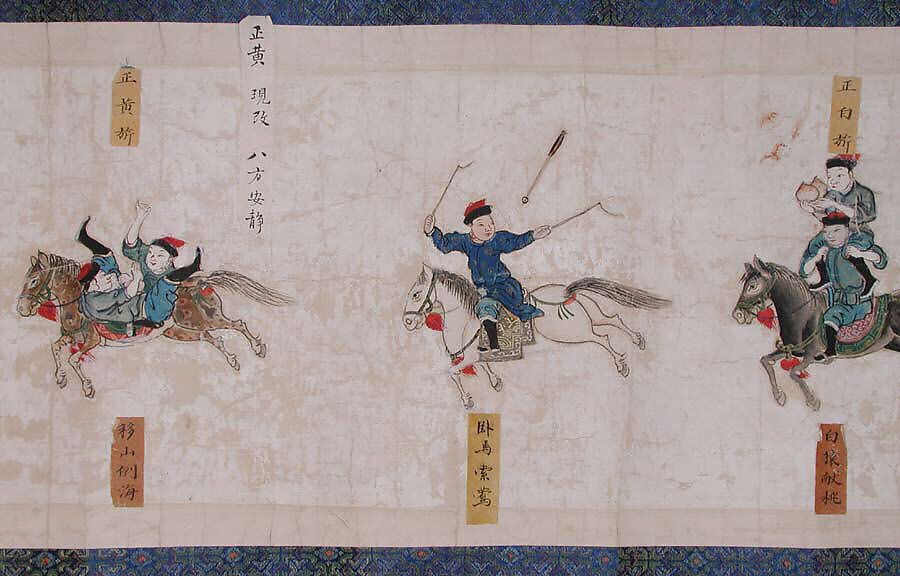 正白旂
白猿献桃
卧馬索鶯
正黄 現改 八方安静
正黄旂
移山倒海